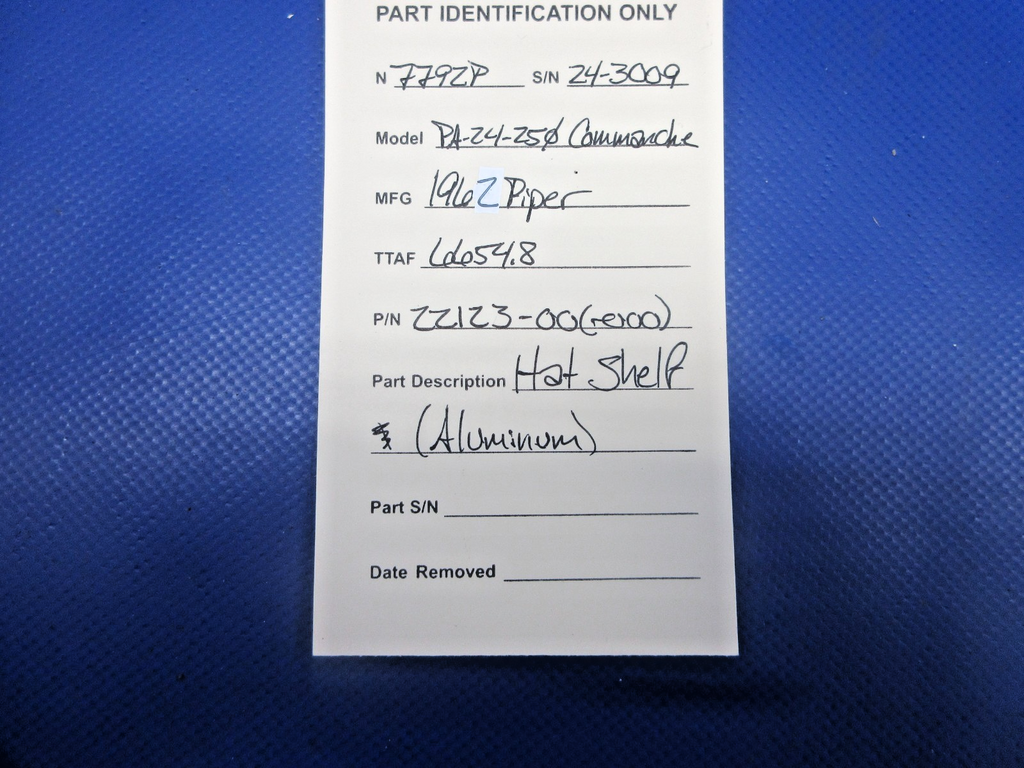 PART IDENTIFICATION ONLY
N 7792P S/N 24-3009
Model PA-24-250 Commanche
MFG 1962 Piper
TTAF 6654.8
P/N 22123-00 (revoo)
Part Description Hat Shelf
(Aluminum)
Part S/N
Date Removed